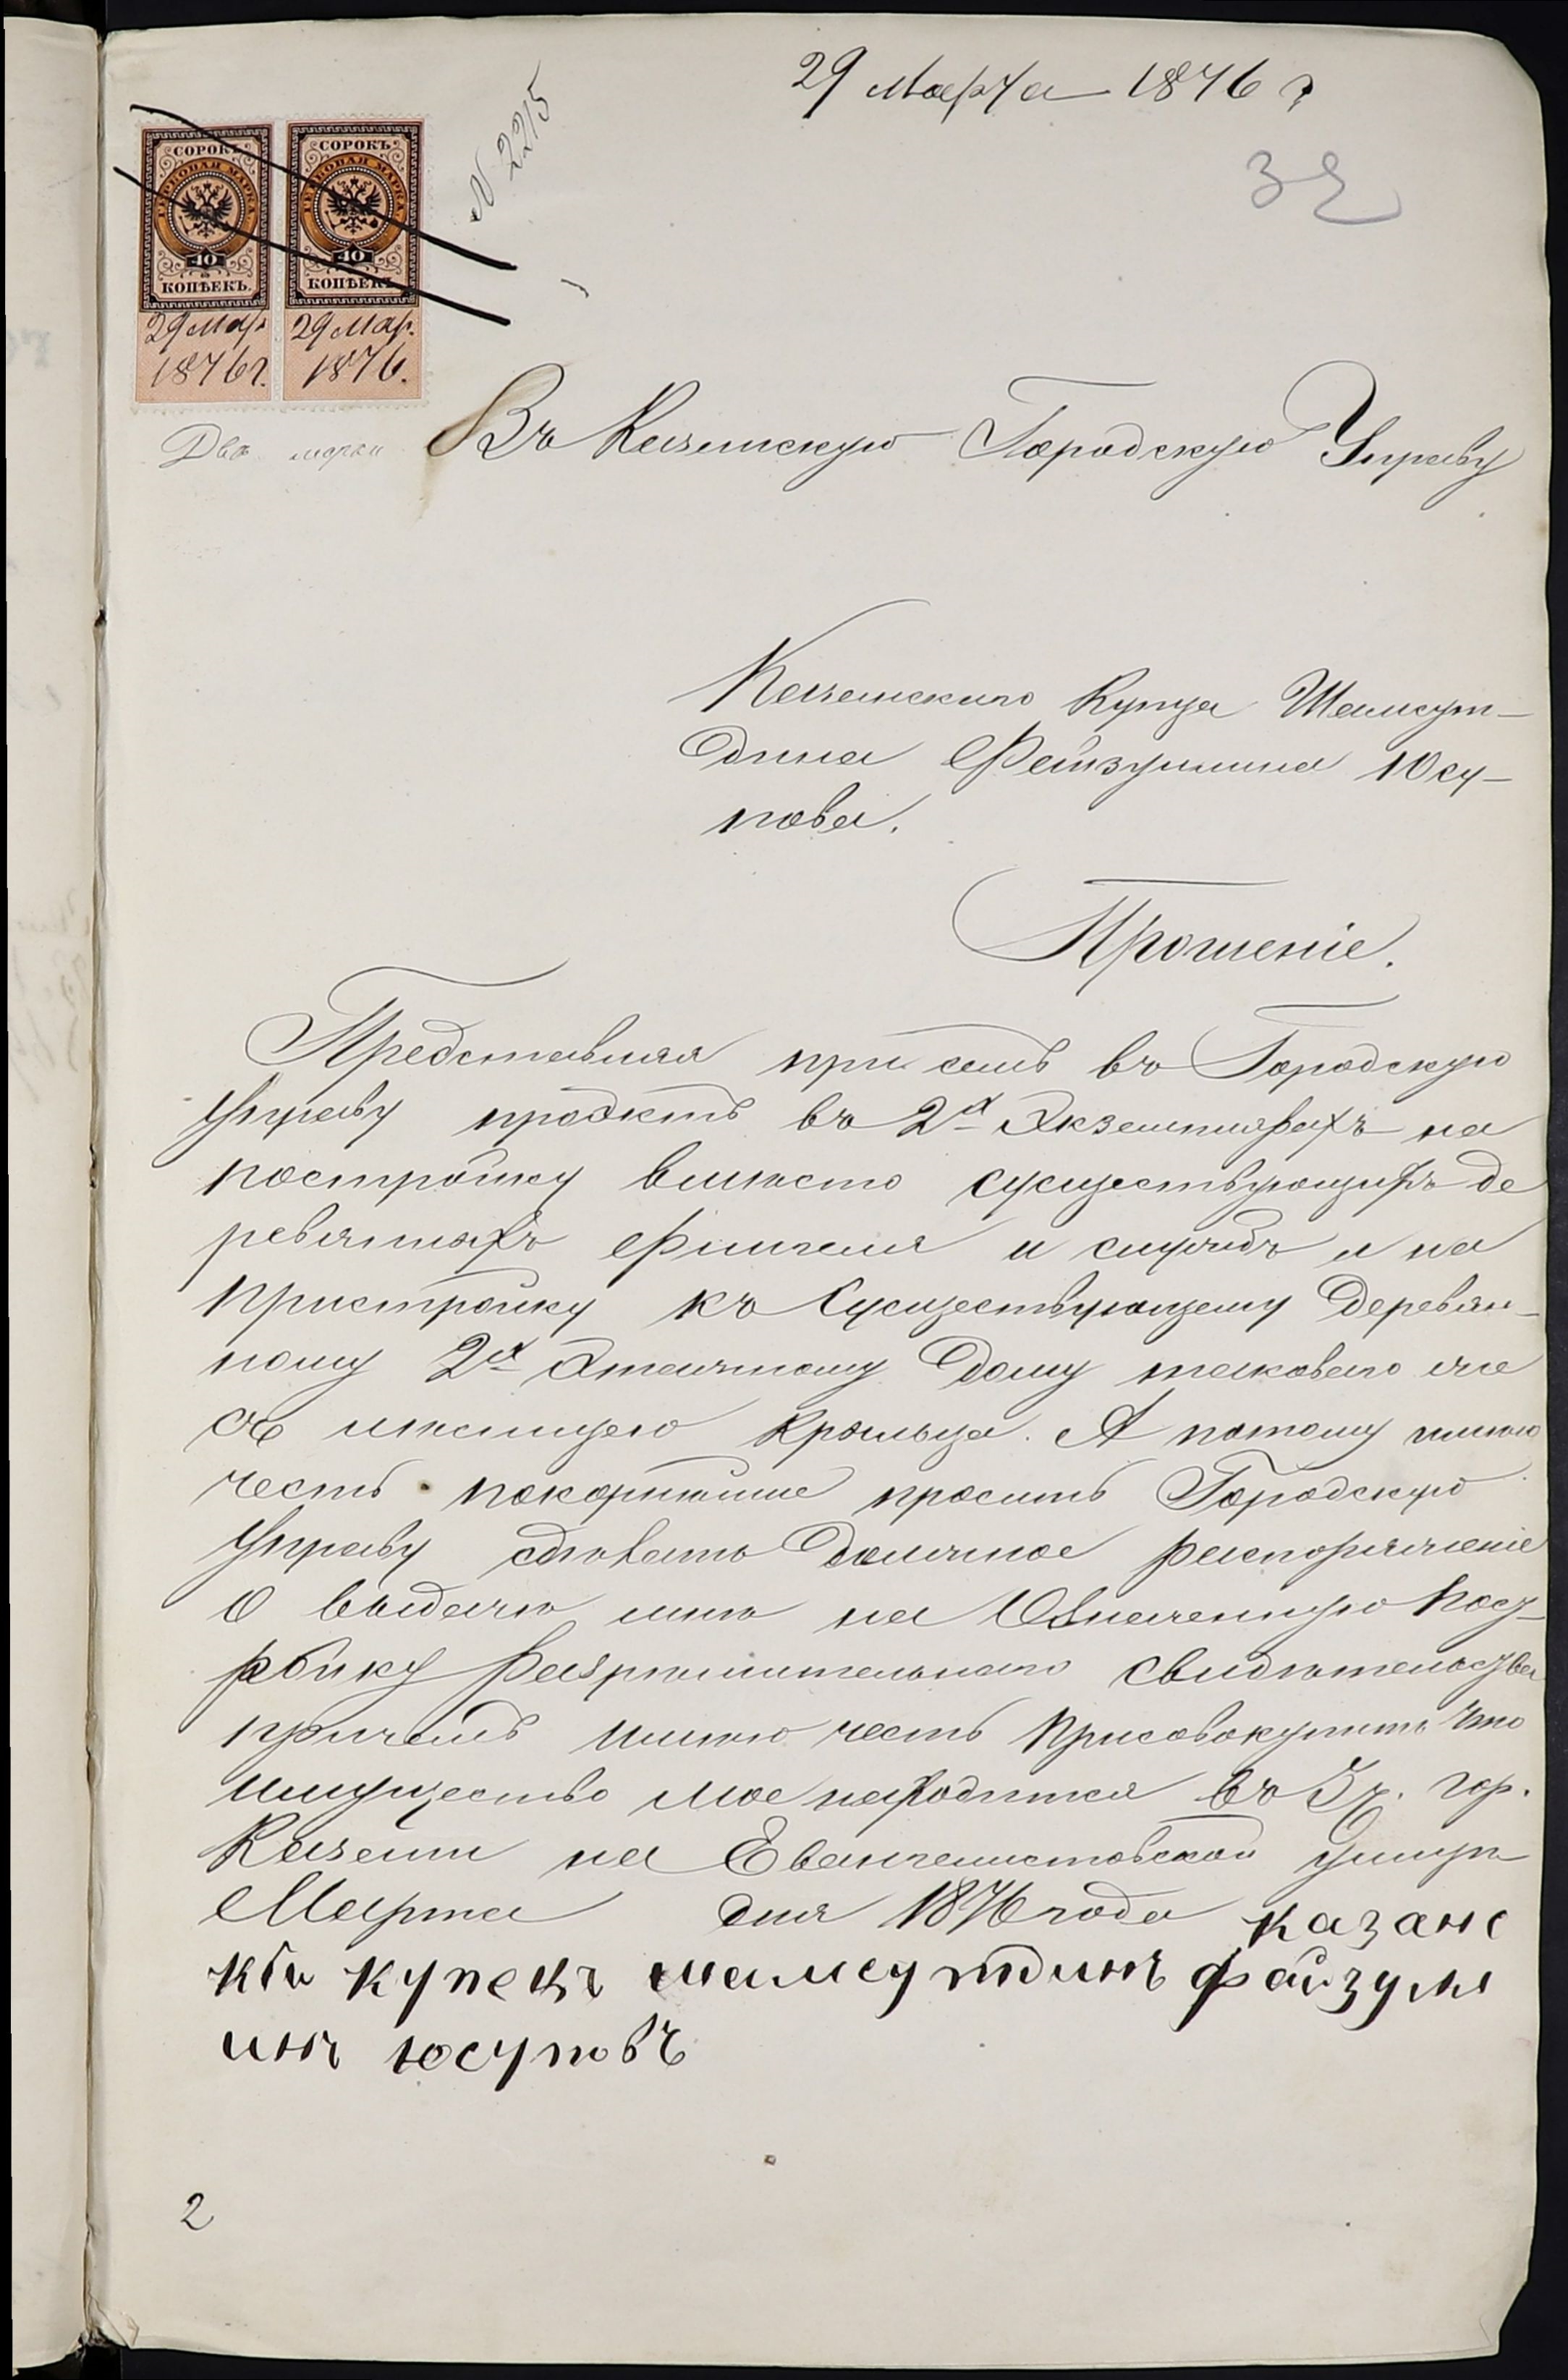 29 Марта 1876 г
32
N 2215
СОРОКЪ СОРОКЪ
ГЕРБОВАЯ МАРКА ГЕРБОВАЯ МАРКА
40 40
КОПѢЕКЪ. КОПѢЕКЪ.
29 Мар 29 Мар.
1876 г. 1876.
Две марки
Въ Казанскую Городскую Управу
Казанскаго Купца Шамсут-
дина Файзуллина Юсу-
пова.
Прошеніе.
Представляя при семъ въ Городскую
Управу проэктъ въ 2х Экземплярахъ на
постройку вмѣсто существующихъ де
ревянныхъ Флигеля и службъ и на
пристройку къ Существующему Деревян-
ному 2х Этажному Дому таковаго же
съ лѣстницею крыльца. А потому имѣю
честь покорнѣйше просить Городскую
Управу сдѣлать Должное распоряженіе
О выдачѣ мнѣ на Означенную Пост-
ройку Разрѣшительнаго свидѣтельства
причемъ имѣю честь присовокупить что
имущество мое находится въ 3ч. гор.
Казани на Евангелистовской улицѣ
Марта дня 1876 года казанс
кій купецъ шамсутдинъ файзулл
инъ юсуповъ
2